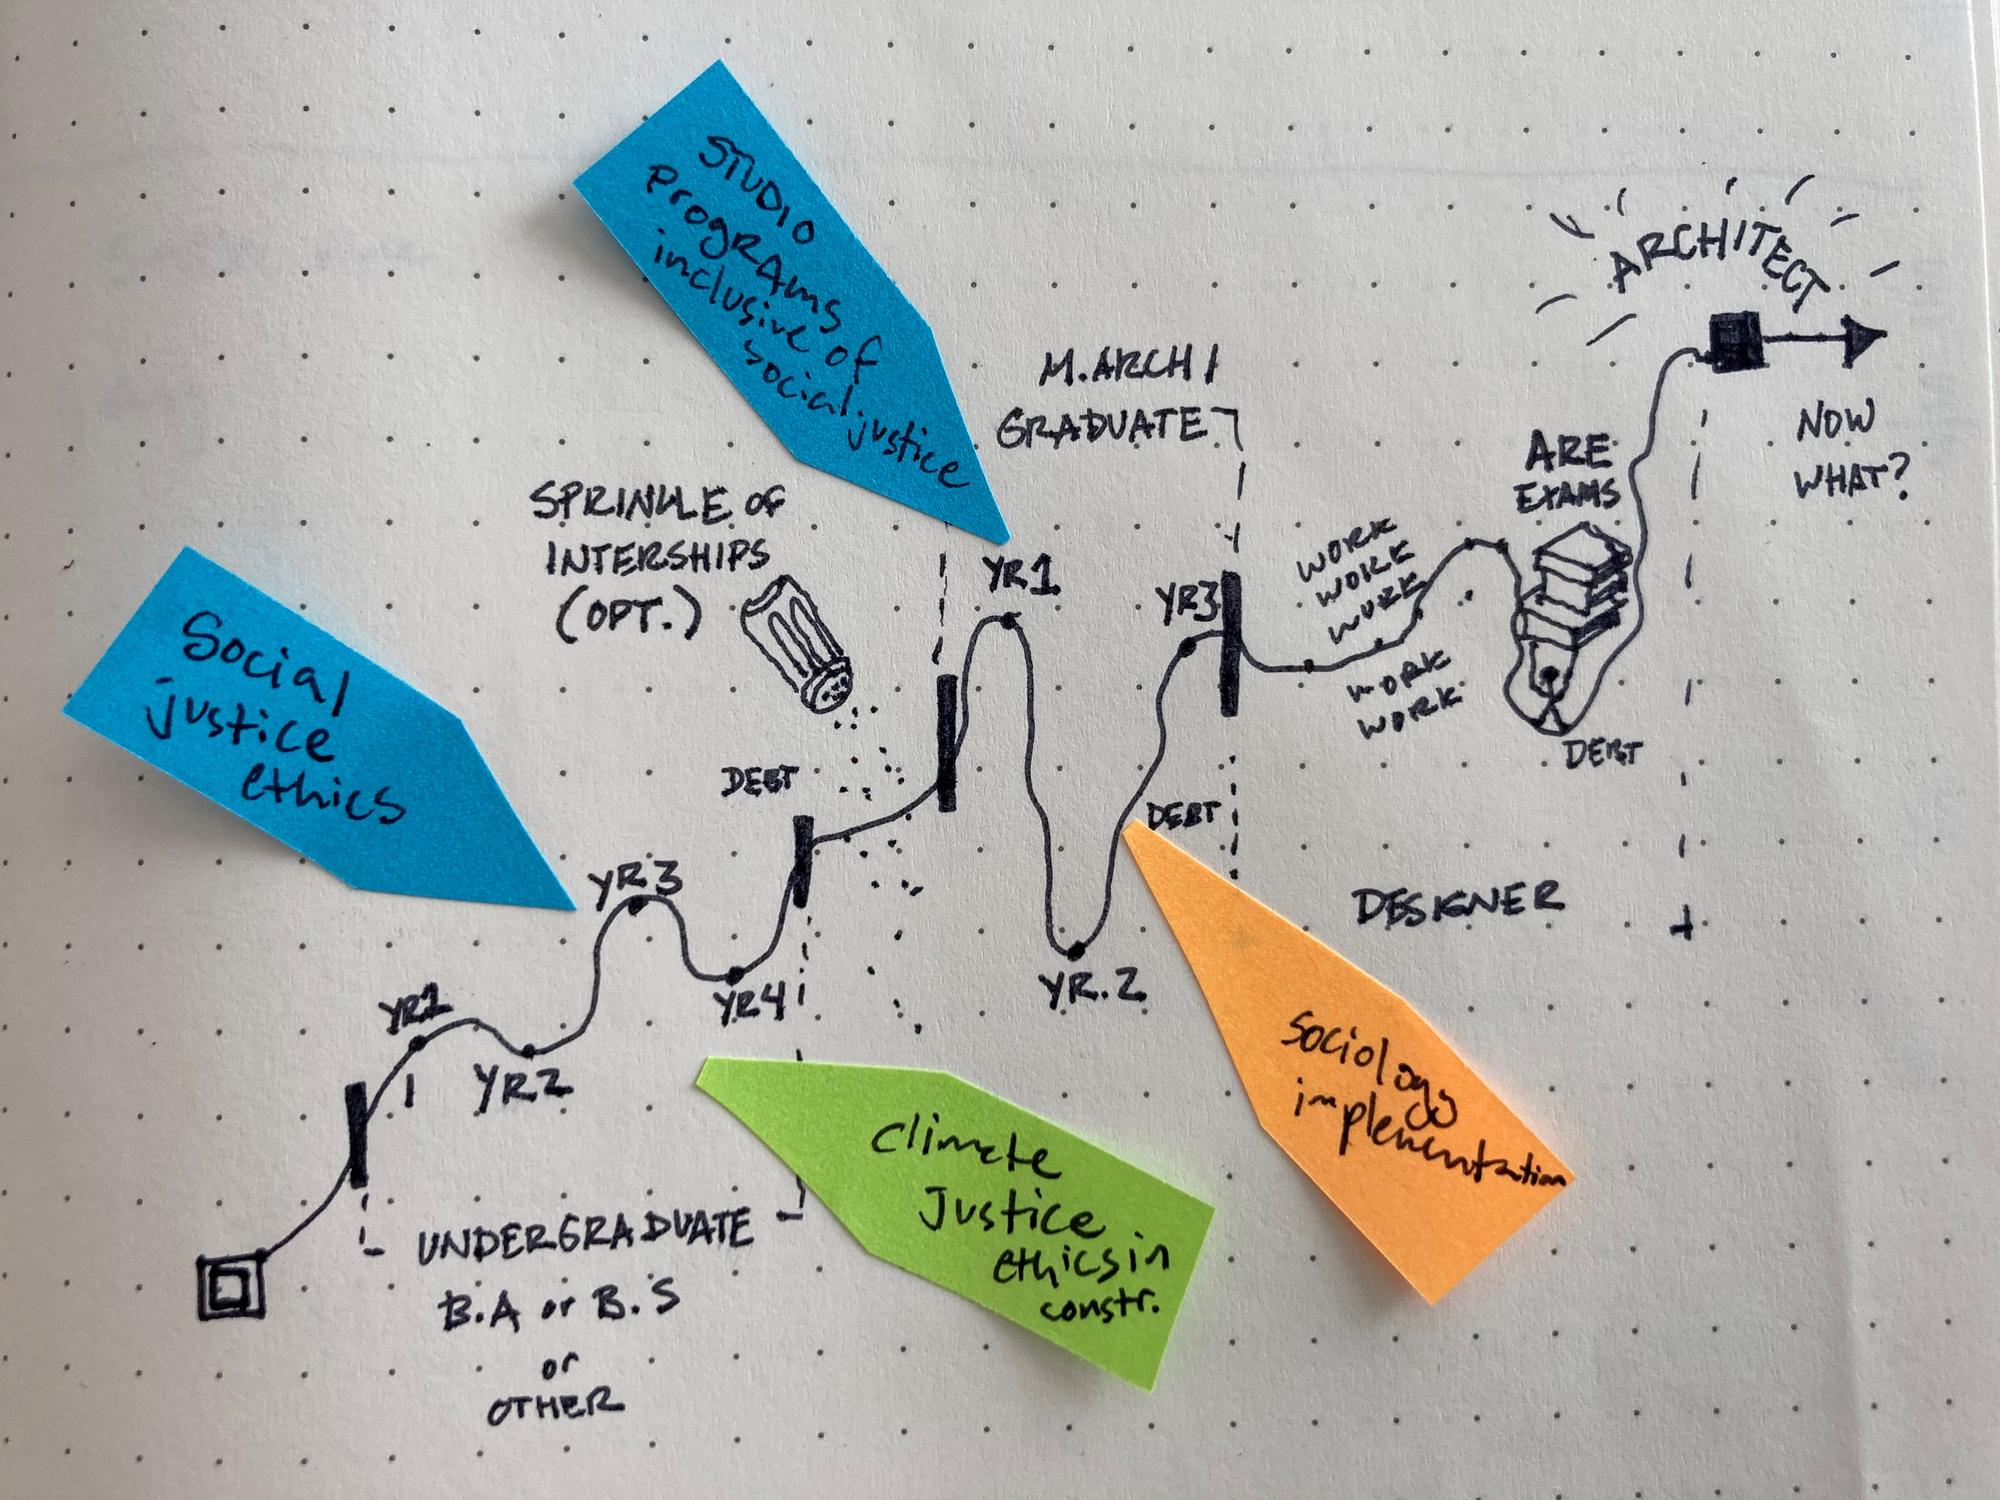 STUDIO
programs
inclusive of
social justice
ARCHITECT
NOW
WHAT?
M.ARCH I
GRADUATE
ARE
EXAMS
SPRINKLE OF
INTERSHIPS
(OPT.)
YR1
YR3
WORK
WORK
WORK
WORK
WORK
DEBT
Social
justice
ethics
DEBT
DEBT
DESIGNER
YR3
YR4
YR.2
YR1
YR2
Sociology
implementation
Climate
Justice
ethics in
constr.
UNDERGRADUATE
B.A or B.S
or
OTHER